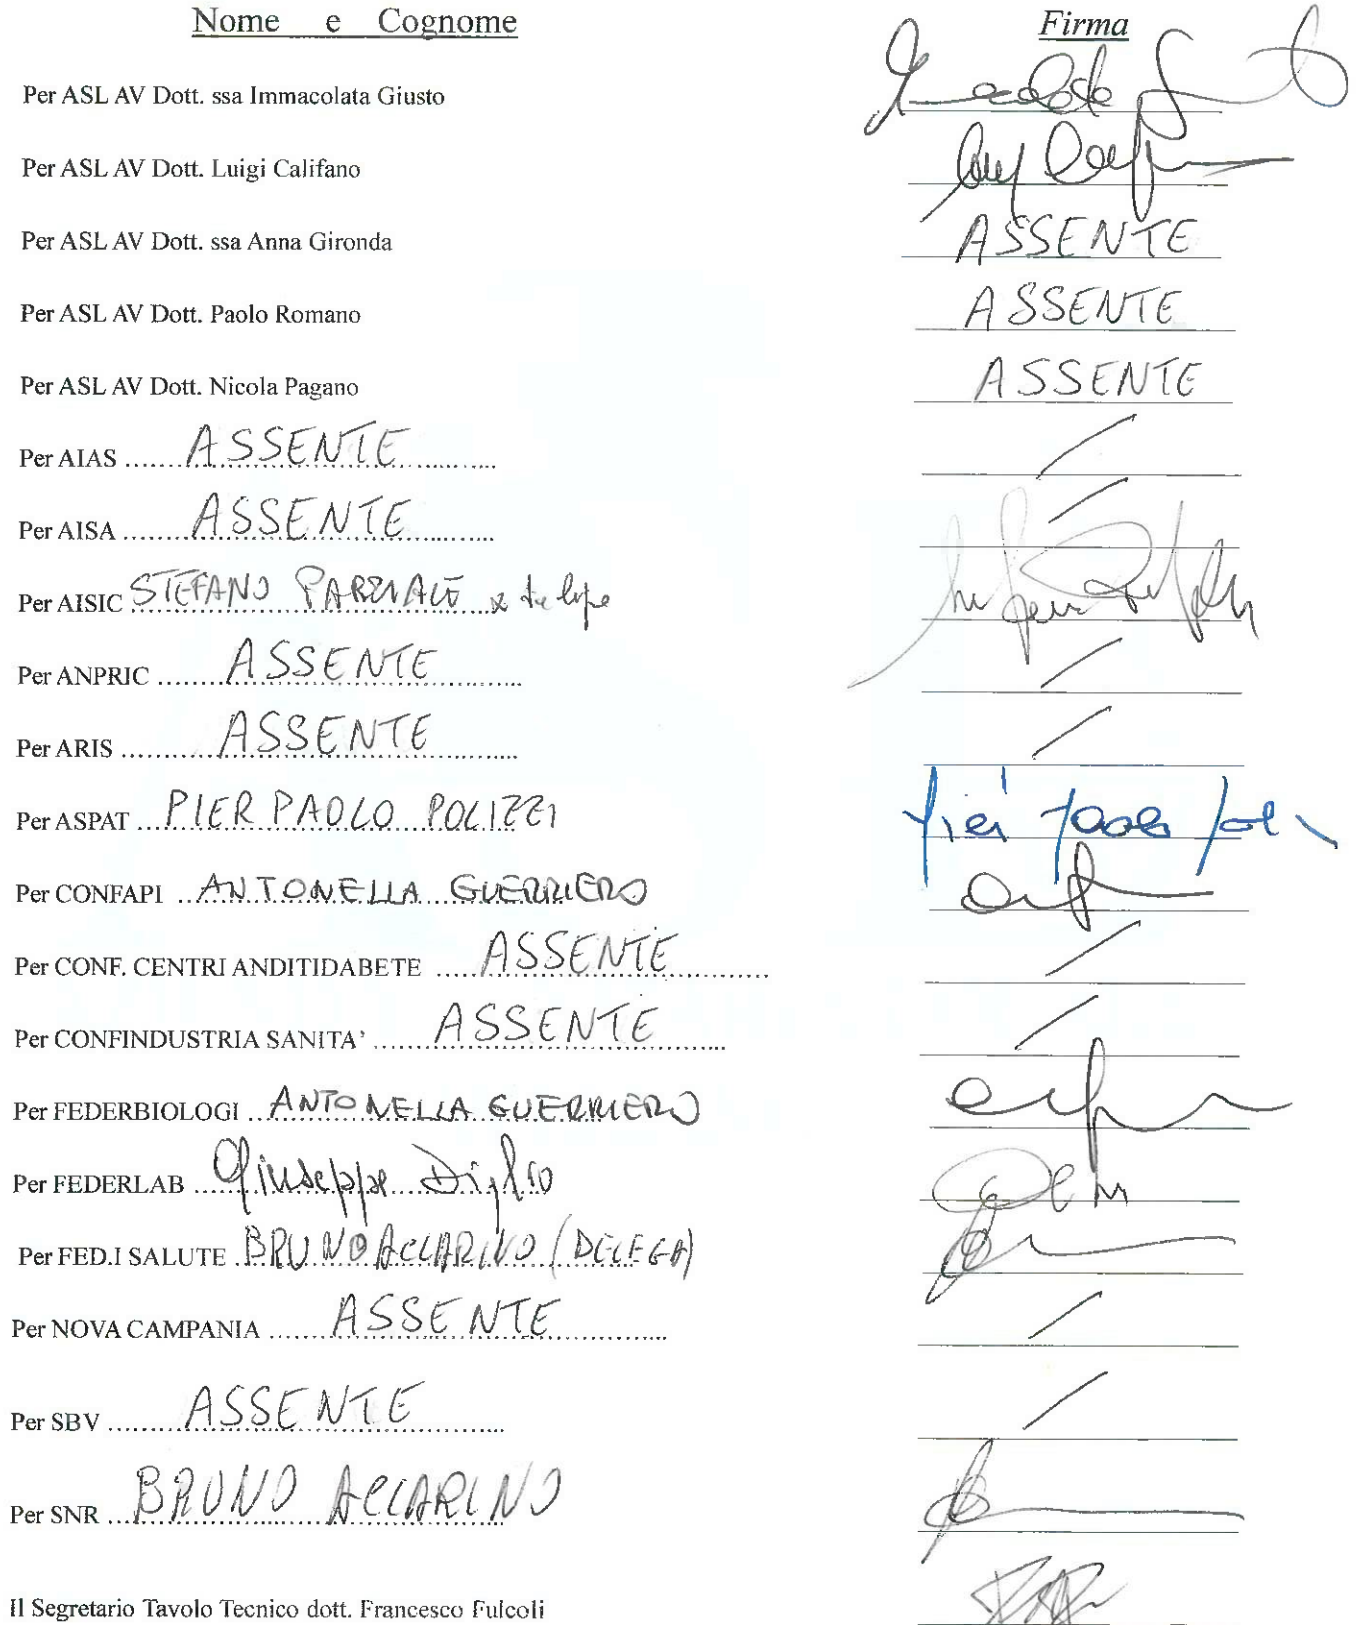 Nome e Cognome Firma
Per ASL AV Dott. ssa Immacolata Giusto
Per ASL AV Dott. Luigi Califano
Per ASL AV Dott. ssa Anna Gironda ASSENTE
Per ASL AV Dott. Paolo Romano ASSENTE
Per ASL AV Dott. Nicola Pagano ASSENTE
Per AIAS ASSENTE
Per AISA ASSENTE
Per AISIC STEFANO PARZIALE
Per ANPRIC ASSENTE
Per ARIS ASSENTE
Per ASPAT PIER PAOLO POLIZZI
Per CONFAPI ANTONELLA GUERRIERO
Per CONF. CENTRI ANDITIDABETE ASSENTE
Per CONFINDUSTRIA SANITA’ ASSENTE
Per FEDERBIOLOGI ANTONELLA GUERRIERO
Per FEDERLAB Giuseppe Diglio
Per FED.I SALUTE BRUNO ACCARINO (DELEGA)
Per NOVA CAMPANIA ASSENTE
Per SBV ASSENTE
Per SNR BRUNO ACCARINO
Il Segretario Tavolo Tecnico dott. Francesco Fulcoli